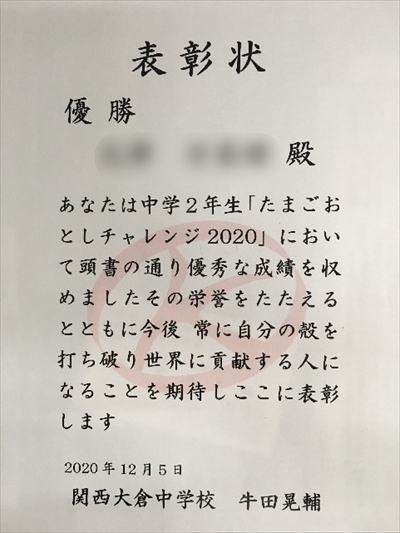 表彰状
優勝
殿
あなたは中学2年生「たまごお
としチャレンジ2020」におい
て頭書の通り優秀な成績を収
めましたその栄誉をたたえる
とともに今後 常に自分の殻を
打ち破り世界に貢献する人に
なることを期待しここに表彰
します
2020年12月5日
関西大倉中学校 牛田晃輔